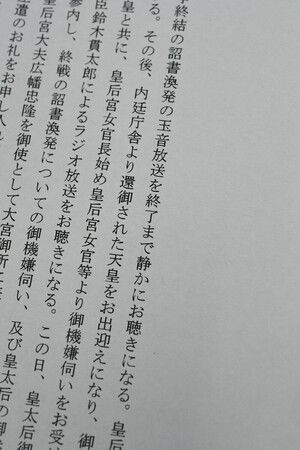 終結の詔書渙発の玉音放送を終了まで静かにお聴きになる。皇后
る。その後、内廷庁舎より還御された天皇をお出迎えになり、御
皇と共に、皇后宮女官長始め皇后宮女官等より御機嫌伺いをお受け
臣鈴木貫太郎によるラジオ放送をお聴きになる。この日、皇太后御
参内し、終戦の詔書渙発についての御機嫌伺い、及び皇太后の御
皇后宮大夫広幡忠隆を御使として大宮御所に
遣のお礼をお申し入れ